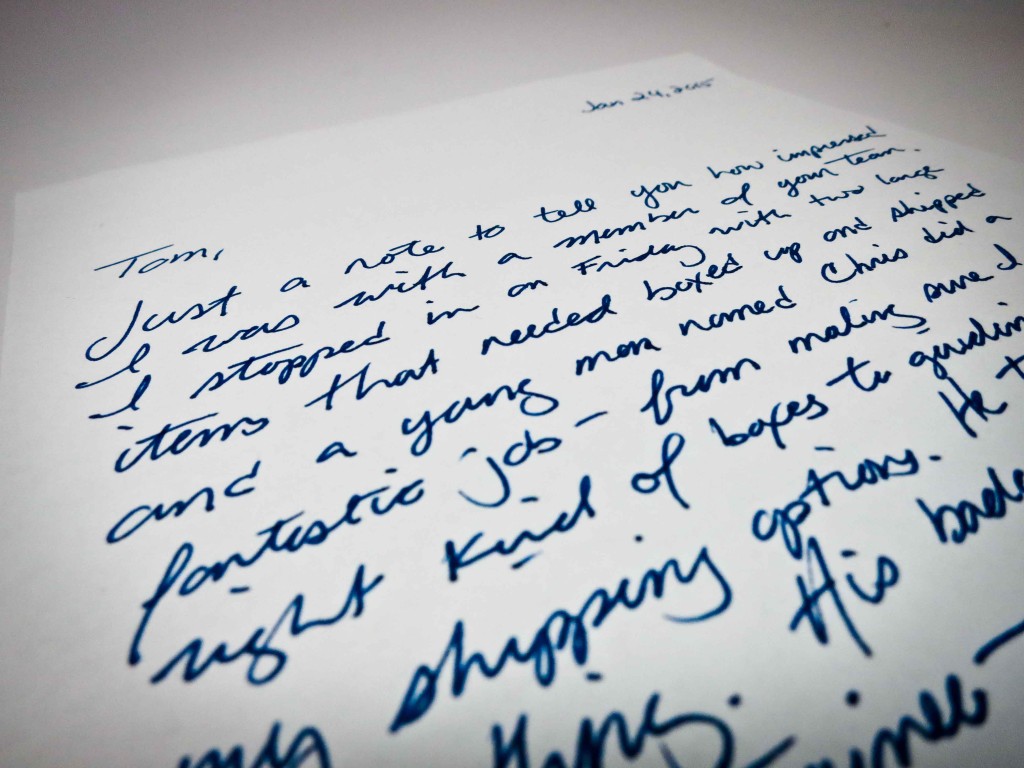 Jan 24, 2015
Tom,
Just a note to tell you how impressed
I was with a member of your team.
I stopped in on Friday with two large
items that needed boxed up and shipped
and a young man named Chris did a
fantastic job - from making sure I
right kind of boxes to guidin
my shipping options. He t
thing. His bad
ainee